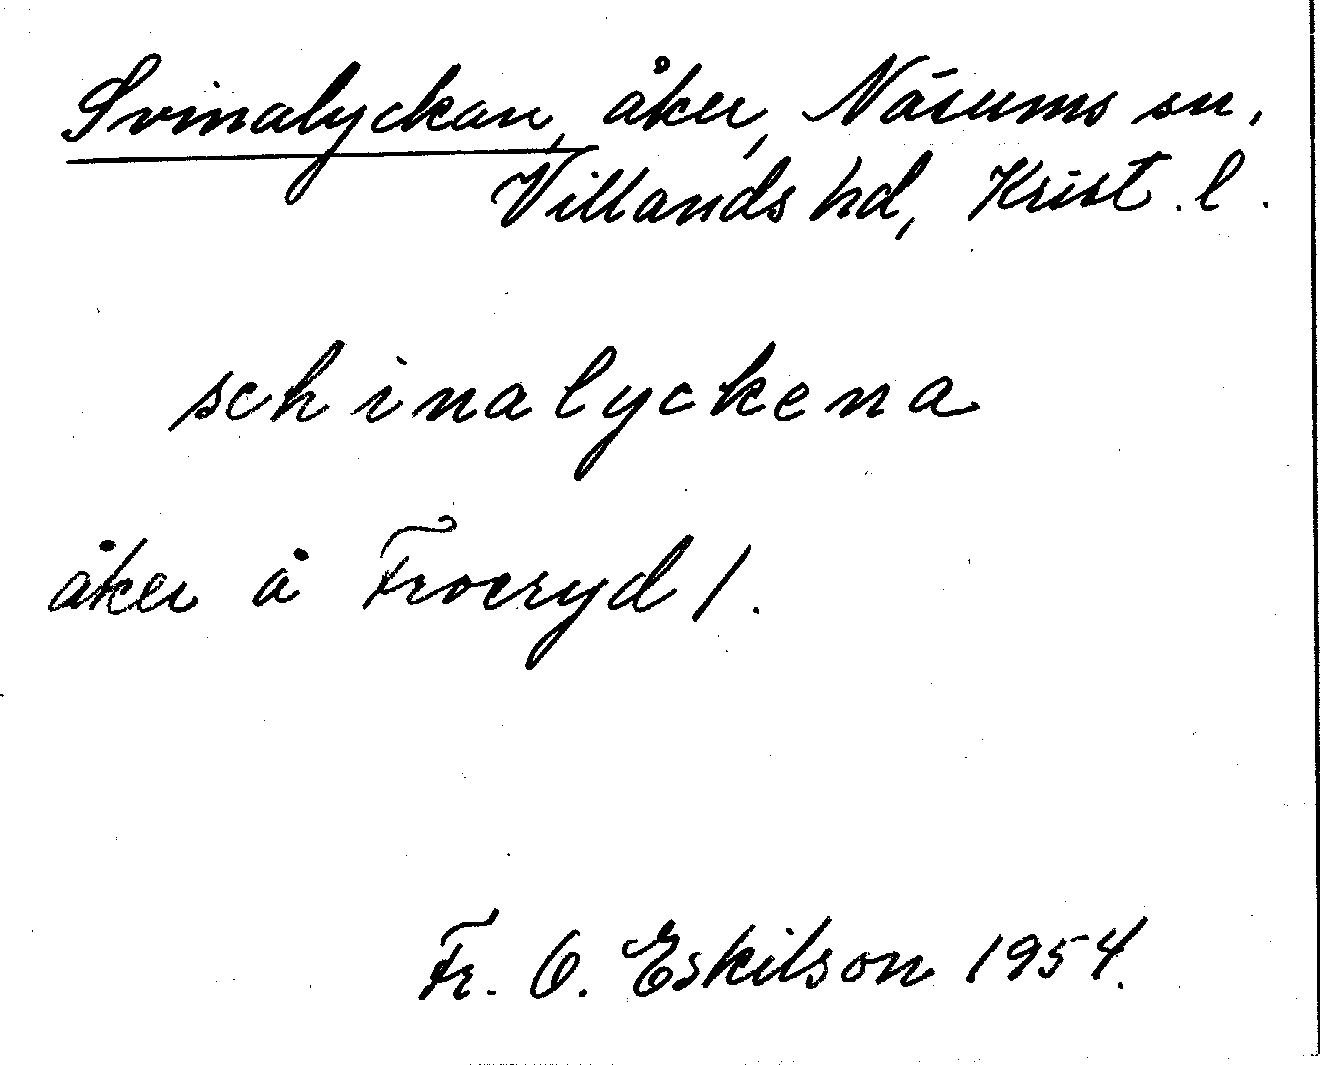 Svinalyckan, åker, Näsums sn,
Villands hd, Krist. l.
schinalyckena
åker å Froeryd 1.
Fr. O. Eskilson 1954.